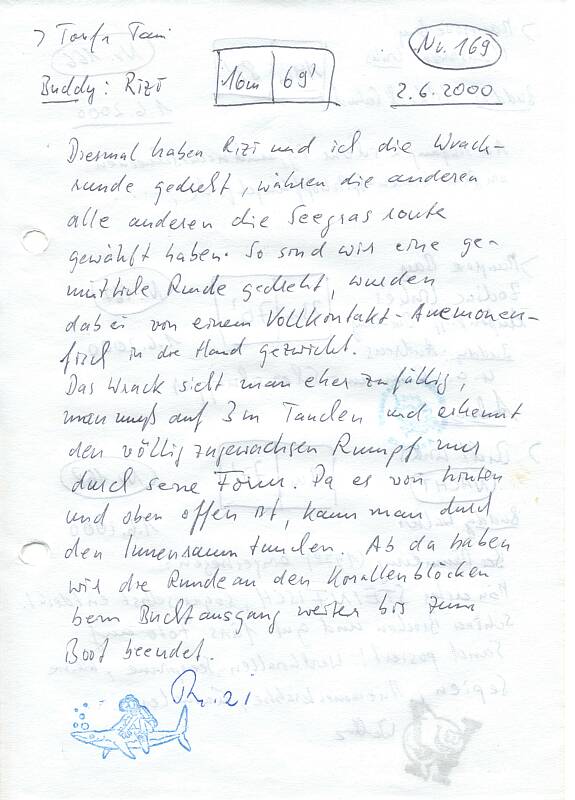 > Torfa Tani
Nr. 169
Buddy: Rizi
16m 69'
2.6.2000
Diesmal haben Rizi und ich die Wrack-
runde gedreht, währen die anderen
alle anderen die Seegrasroute
gewählt haben. So sind wir eine ge-
mütliche Runde gedreht, wurden
dabei von einem Vollkontakt-Anemonen-
fisch in die Hand gezwickt.
Das Wrack sieht man eher zufällig,
man muß auf 3m Tauchen und erkennt
den völlig zugewachsen Rumpf nur
durch seine Form. Da es von hinten
und oben offen ist, kann man durch
den Innenraum tauchen. Ab da haben
wir die Runde an den Korallenblöcken
beim Buchtausgang weiter bis zum
Boot beendet.